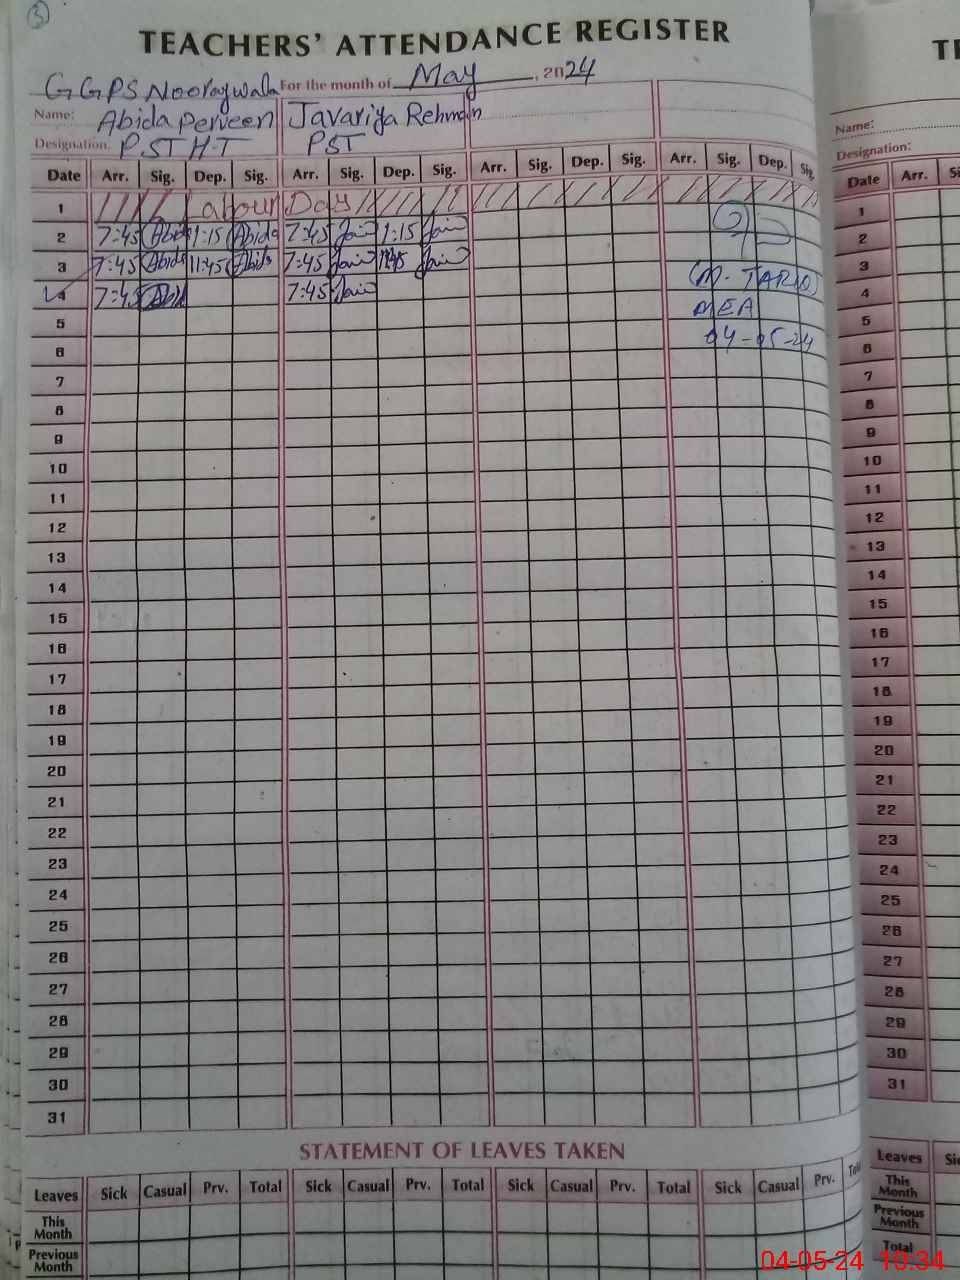 3
TEACHERS' ATTENDANCE REGISTER
GGPS Nooraywala For the month of May, 2024
Name: Abida Perveen Javariya Rehman
Designation. PST H.T PST
Date Arr. Sig. Dep. Sig. Arr. Sig. Dep. Sig. Arr. Sig. Dep. Sig. Arr. Sig. Dep. Sig.
1 Labour Day
2 7:45 Abida 1:15 Abida 7:45 1:15
3 7:45 Abida 11:45 Abida 7:45
4 7:45 7:45
(M. TARIQ)
5
MEA
6
04-05-24
7
8
9
10
11
12
13
14
15
16
17
18
19
20
21
22
23
24
25
26
27
28
29
30
31
STATEMENT OF LEAVES TAKEN
Leaves Sick Casual Prv. Total Sick Casual Prv. Total Sick Casual Prv. Total Sick Casual Prv. Total
This Month
Previous Month
Name:
Designation:
Date Arr.
1
2
3
4
5
6
7
8
9
10
11
12
13
14
15
16
17
18
19
20
21
22
23
24
25
26
27
28
29
30
31
Leaves
This Month
Previous Month
Total
04-05-24 10:34